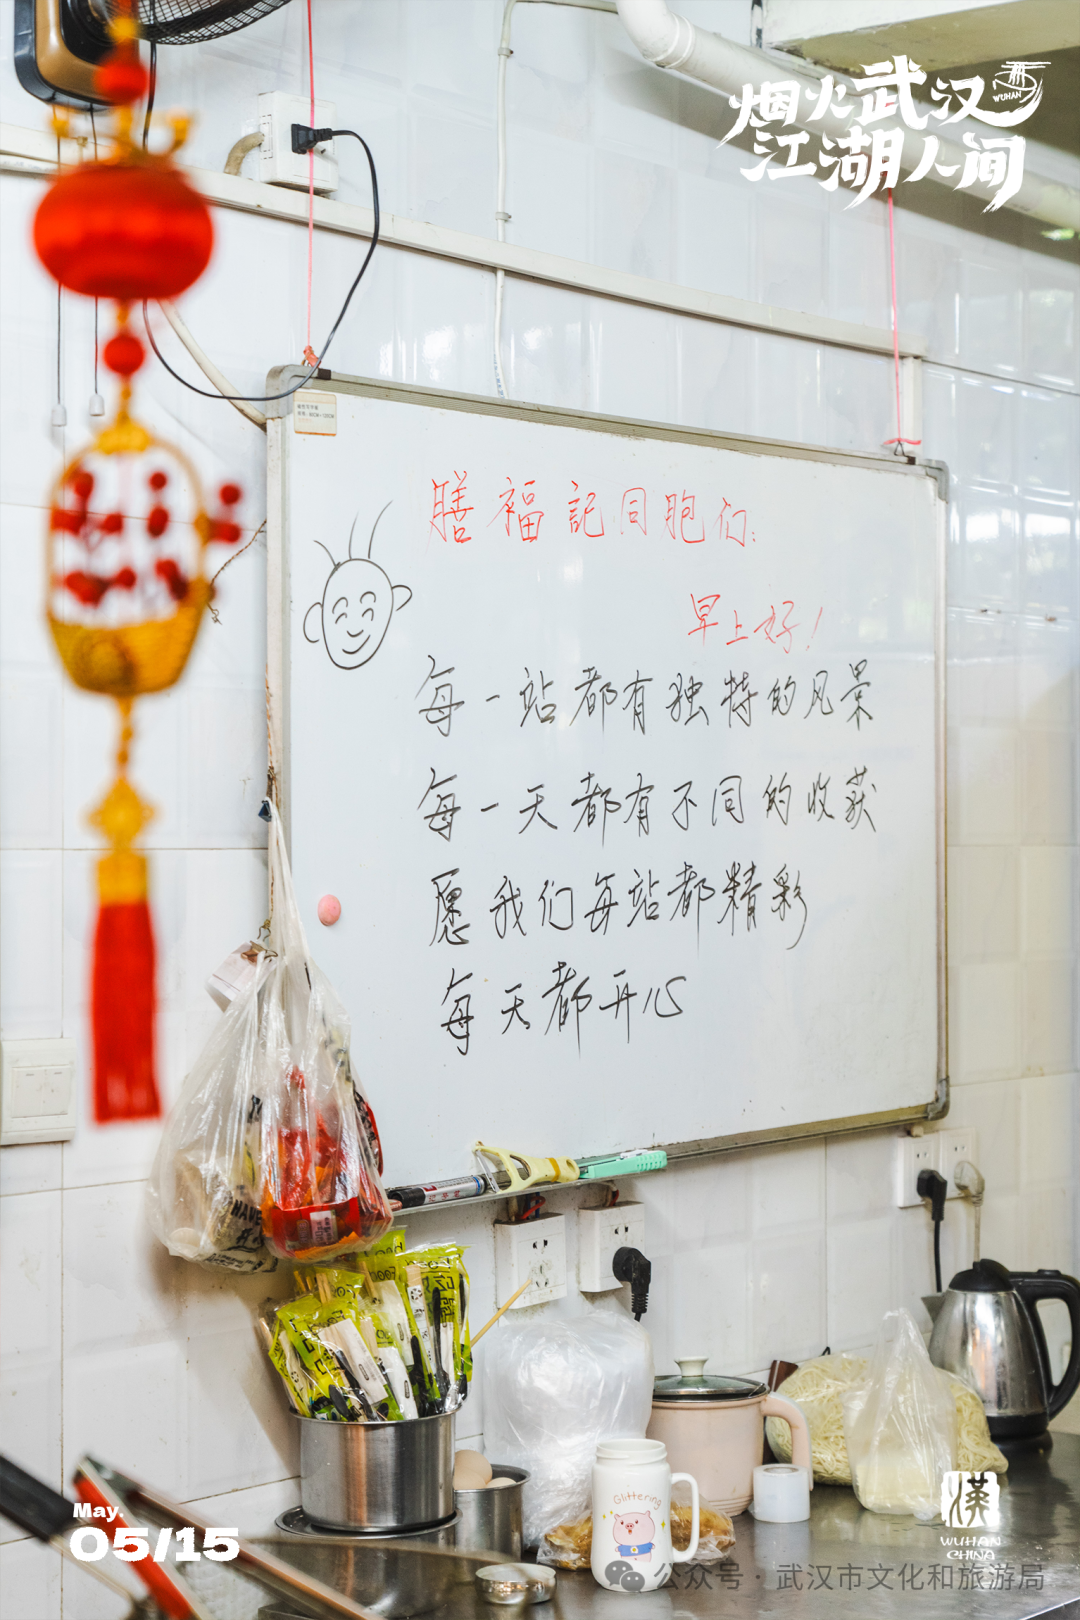 烟火武汉
WUHAN
江湖人间
膳福記同胞们:
早上好!
每一站都有独特的风景
每一天都有不同的收获
愿我们每站都精彩
每天都开心
Glittering
May.
05/15
漢
WUHAN
CHINA
公众号·武汉市文化和旅游局